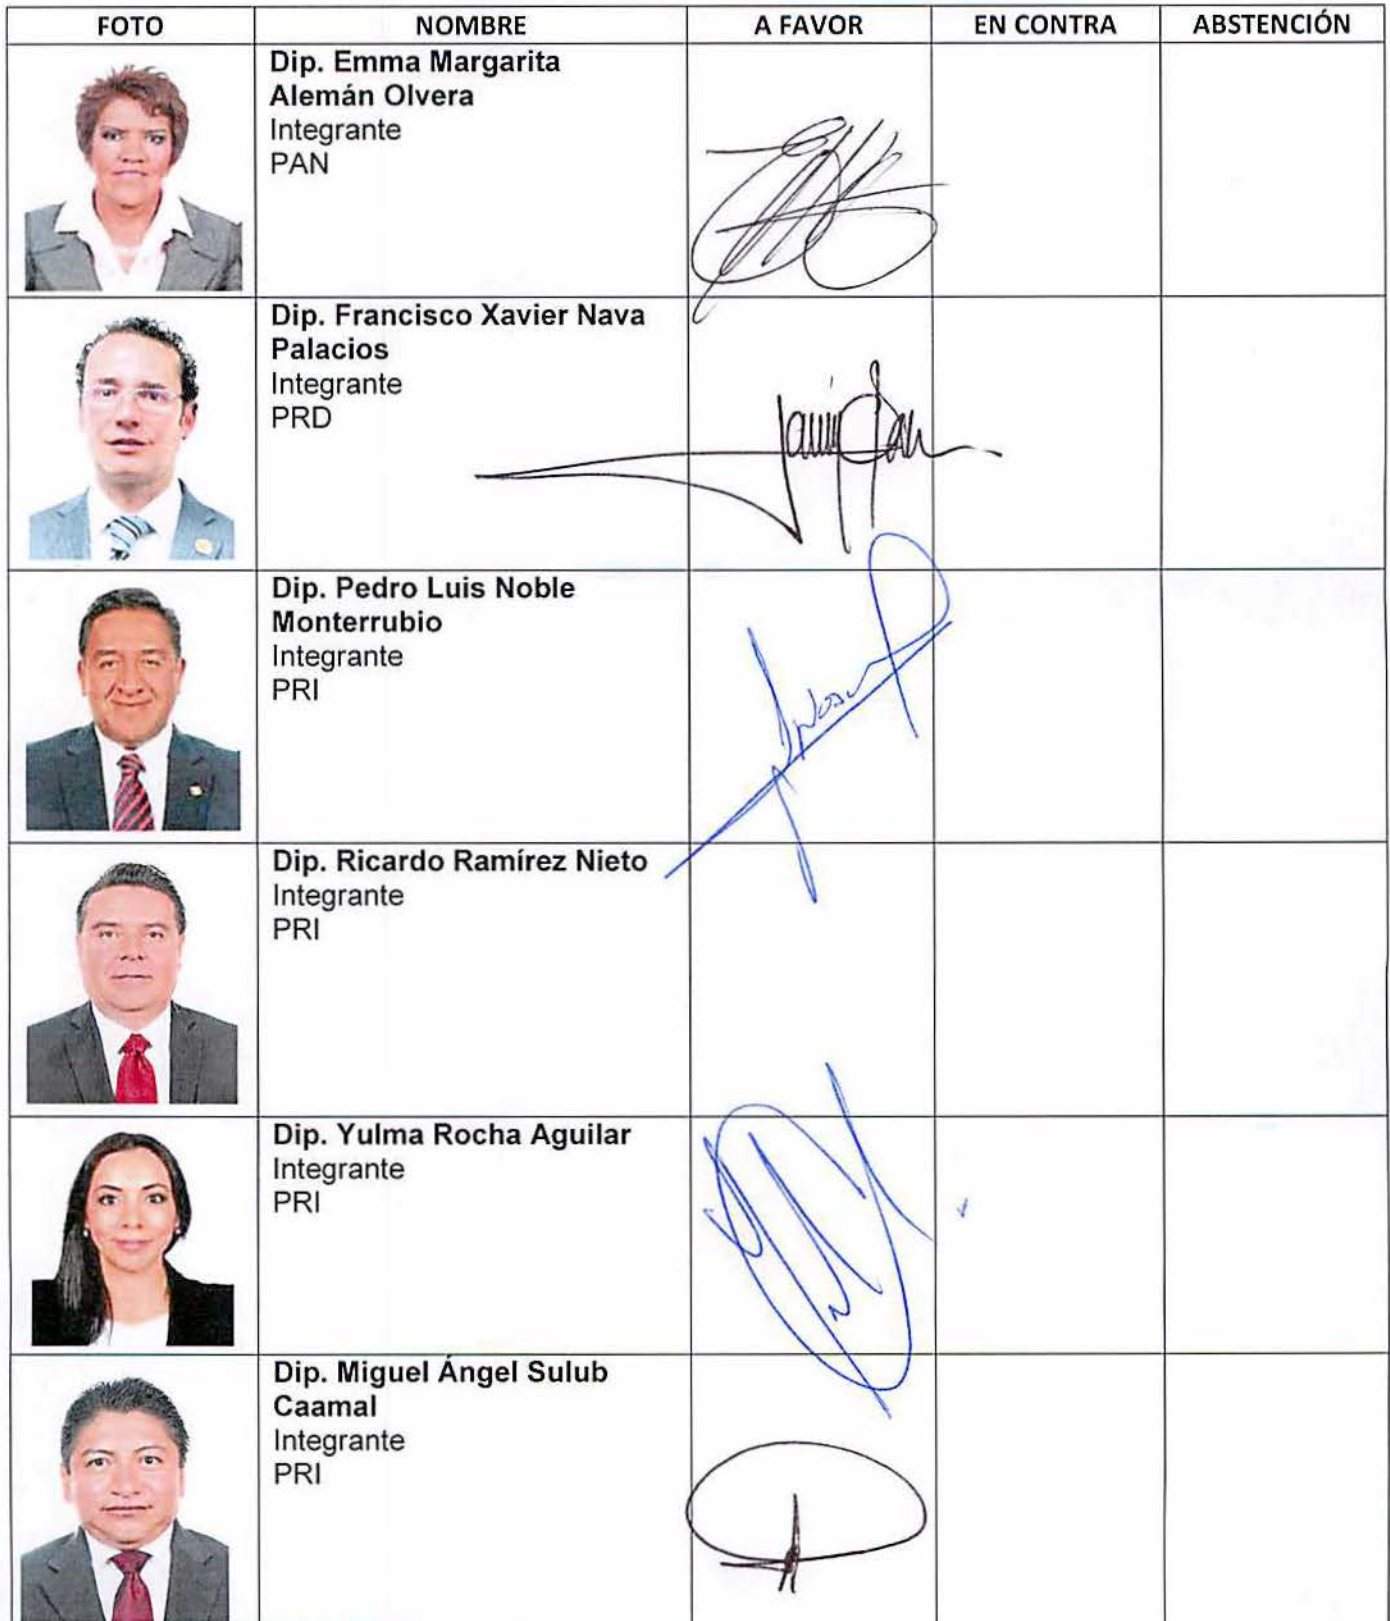 FOTO NOMBRE A FAVOR EN CONTRA ABSTENCIÓN
Dip. Emma Margarita
Alemán Olvera
Integrante
PAN
Dip. Francisco Xavier Nava
Palacios
Integrante
PRD
Dip. Pedro Luis Noble
Monterrubio
Integrante
PRI
Dip. Ricardo Ramírez Nieto
Integrante
PRI
Dip. Yulma Rocha Aguilar
Integrante
PRI
Dip. Miguel Ángel Sulub
Caamal
Integrante
PRI